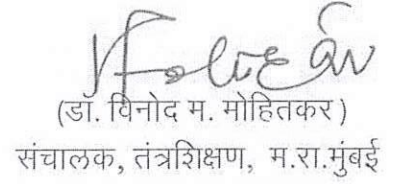 (डॉ. विनोद म. मोहितकर)
संचालक, तंत्रशिक्षण, म.रा.मुंबई